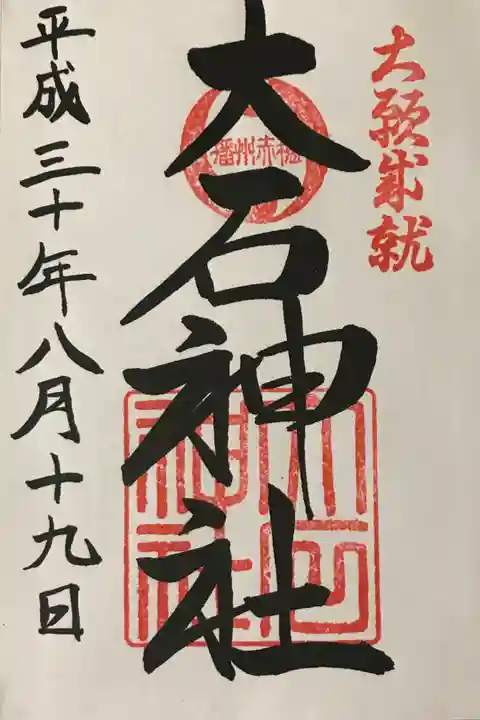 大願成就
播州赤穂
大石神社
大石神社
平成三十年八月十九日